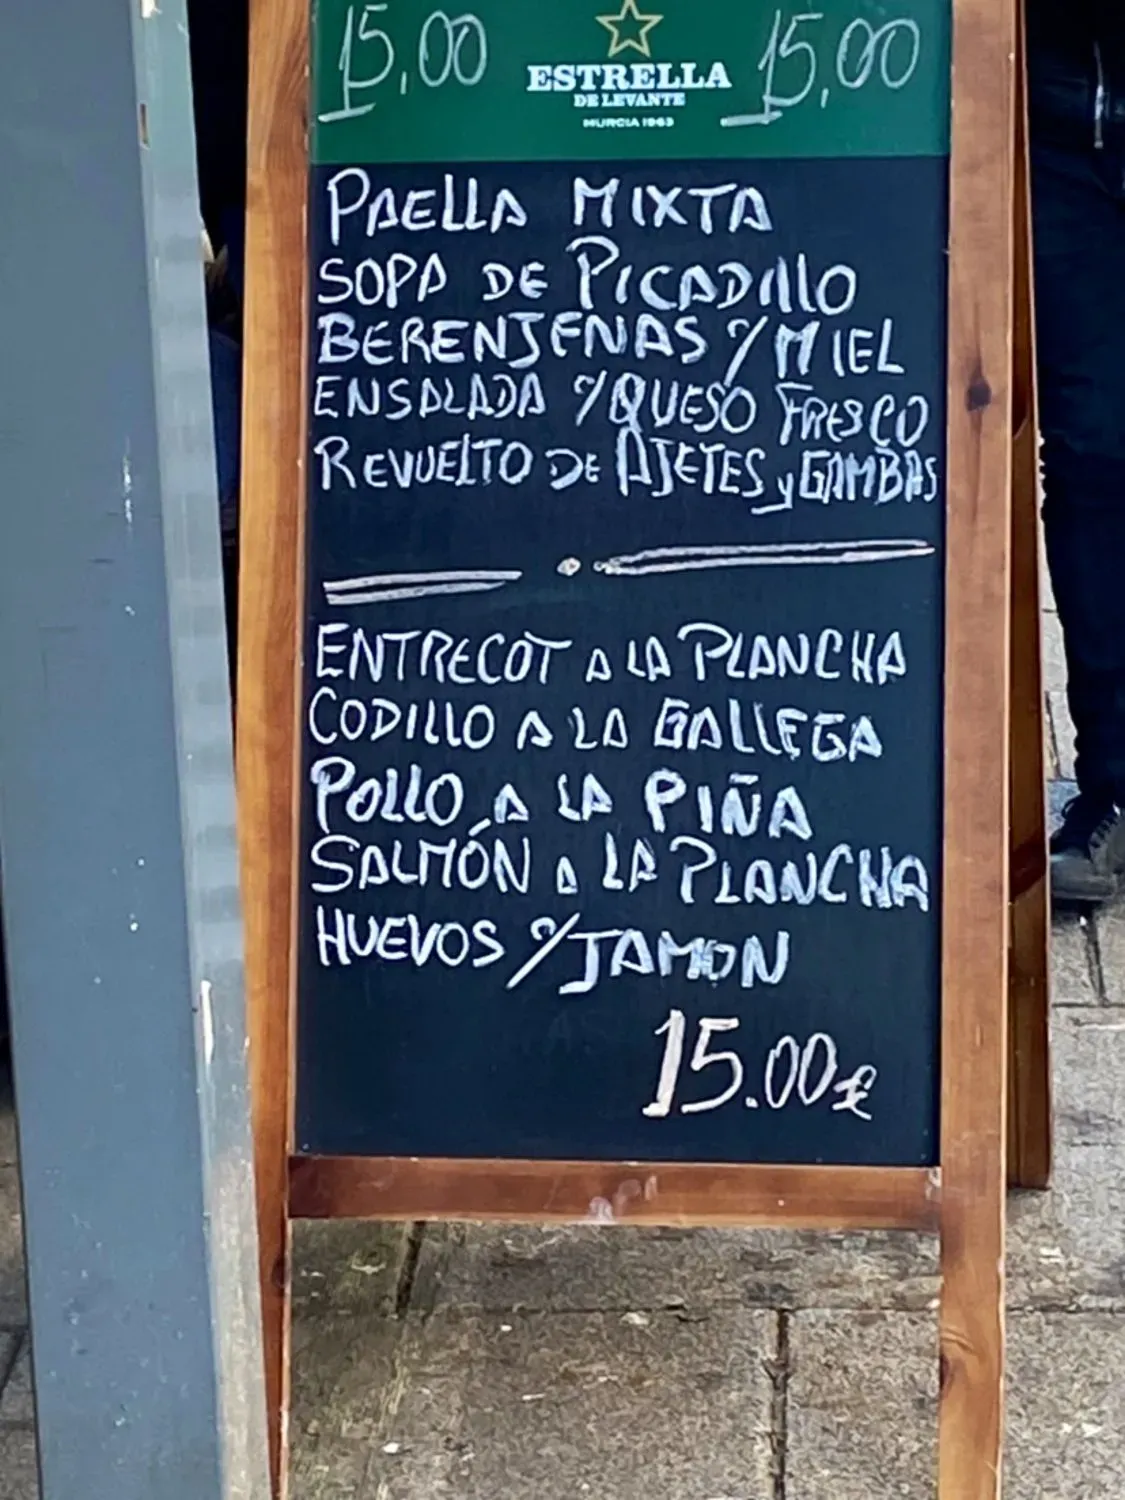 15,00 15,00
ESTRELLA
DE LEVANTE
MURCIA 1963
PAELLA MIXTA
SOPA DE PICADILLO
BERENJENAS c/MIEL
ENSALADA c/QUESO FRESCO
REVUELTO DE AJETES y GAMBAS
ENTRECOT A LA PLANCHA
CODILLO A LA GALLEGA
POLLO A LA PIÑA
SALMÓN A LA PLANCHA
HUEVOS c/JAMON
15.00€